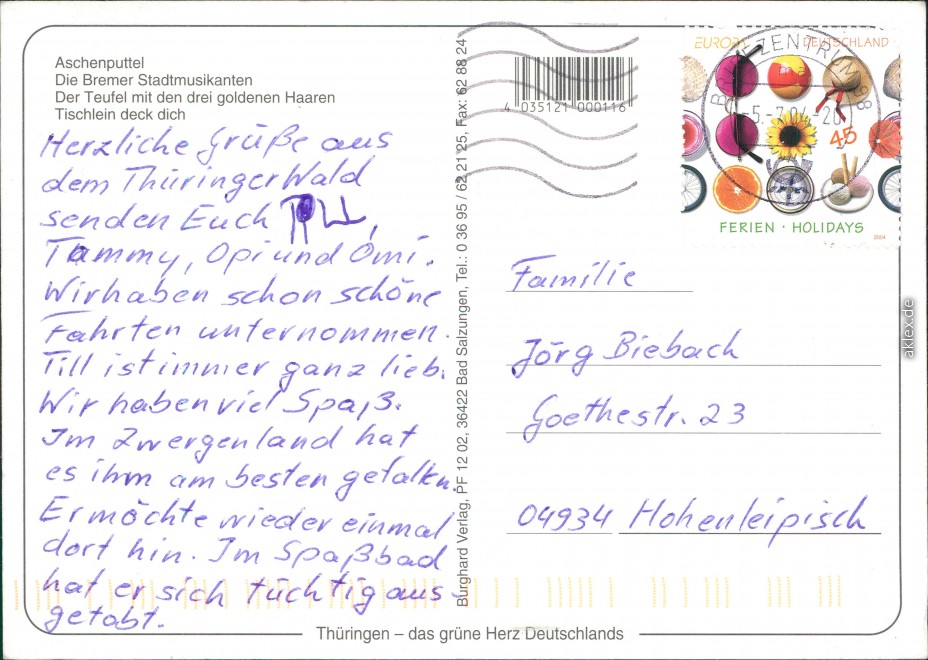 Aschenputtel
Die Bremer Stadtmusikanten
Der Teufel mit den drei goldenen Haaren
Tischlein deck dich
Herzliche Grüße aus
dem Thüringer Wald
senden Euch TILL,
Tammy, Opi und Omi.
Wir haben schon schöne
Fahrten unternommen.
Till ist immer ganz lieb.
Wir haben viel Spaß.
Im Zwergenland hat
es ihm am besten gefalln.
Er möchte wieder einmal
dort hin. Im Spaßbad
hat er sich tüchtig aus-
getobt.
Burghard Verlag, PF 12 02, 36422 Bad Salzungen, Tel.: 0 36 95 / 62 21 25, Fax: 62 88 24
4 035121 000116
EUROPA DEUTSCHLAND
BRIEFZENTRUM
45
FERIEN · HOLIDAYS
2004
Familie
Jörg Biebach
Goethestr. 23
04934 Hohenleipisch
Thüringen – das grüne Herz Deutschlands
aklex.de